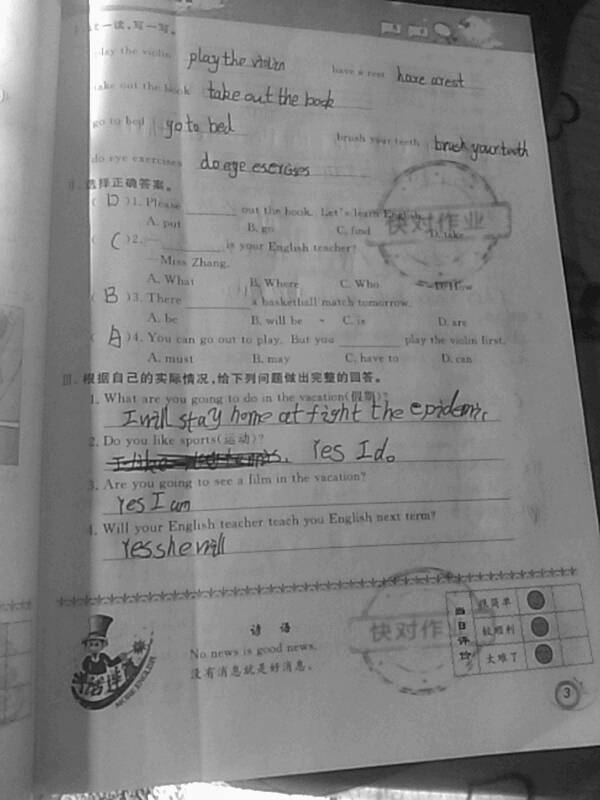 一读,写一写。
play the violin play the violin have a rest have arest
take out the book take out the book
go to bed go to bed brush your teeth brush your teeth
do eye exercises do eye esercises
II. 选择正确答案。
( D )1. Please ______ out the book. Let's learn English.
A. put B. go C. find D. take
( C )2. —______ is your English teacher?
—Miss Zhang.
A. What B. Where C. Who D. How
( B )3. There ______ a basketball match tomorrow.
A. be B. will be C. is D. are
( A )4. You can go out to play. But you ______ play the violin first.
A. must B. may C. have to D. can
III. 根据自己的实际情况,给下列问题做出完整的回答。
1. What are you going to do in the vacation(假期)?
I will stay home at fight the epidemic
2. Do you like sports(运动)?
Yes I do。
3. Are you going to see a film in the vacation?
Yes I am
4. Will your English teacher teach you English next term?
Yes she will
谚 语
No news is good news.
没有消息就是好消息。
当日评价
很简单
较顺利
太难了
MORE ENGLISH
快对作业
快对作
3